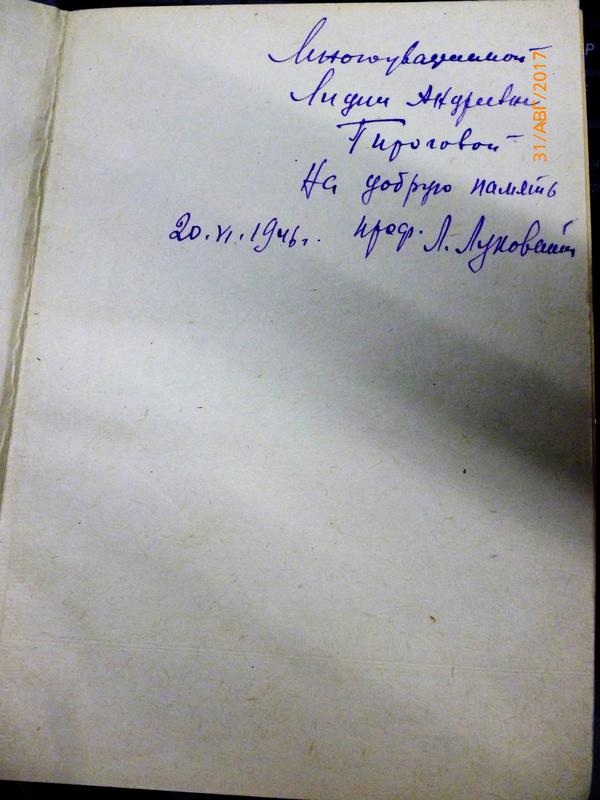 Многоуважаемой
Лидии Андреевне
Пироговой
На добрую память
20.VI.1946г. проф. Л. Луковский
31/АВГ/2017